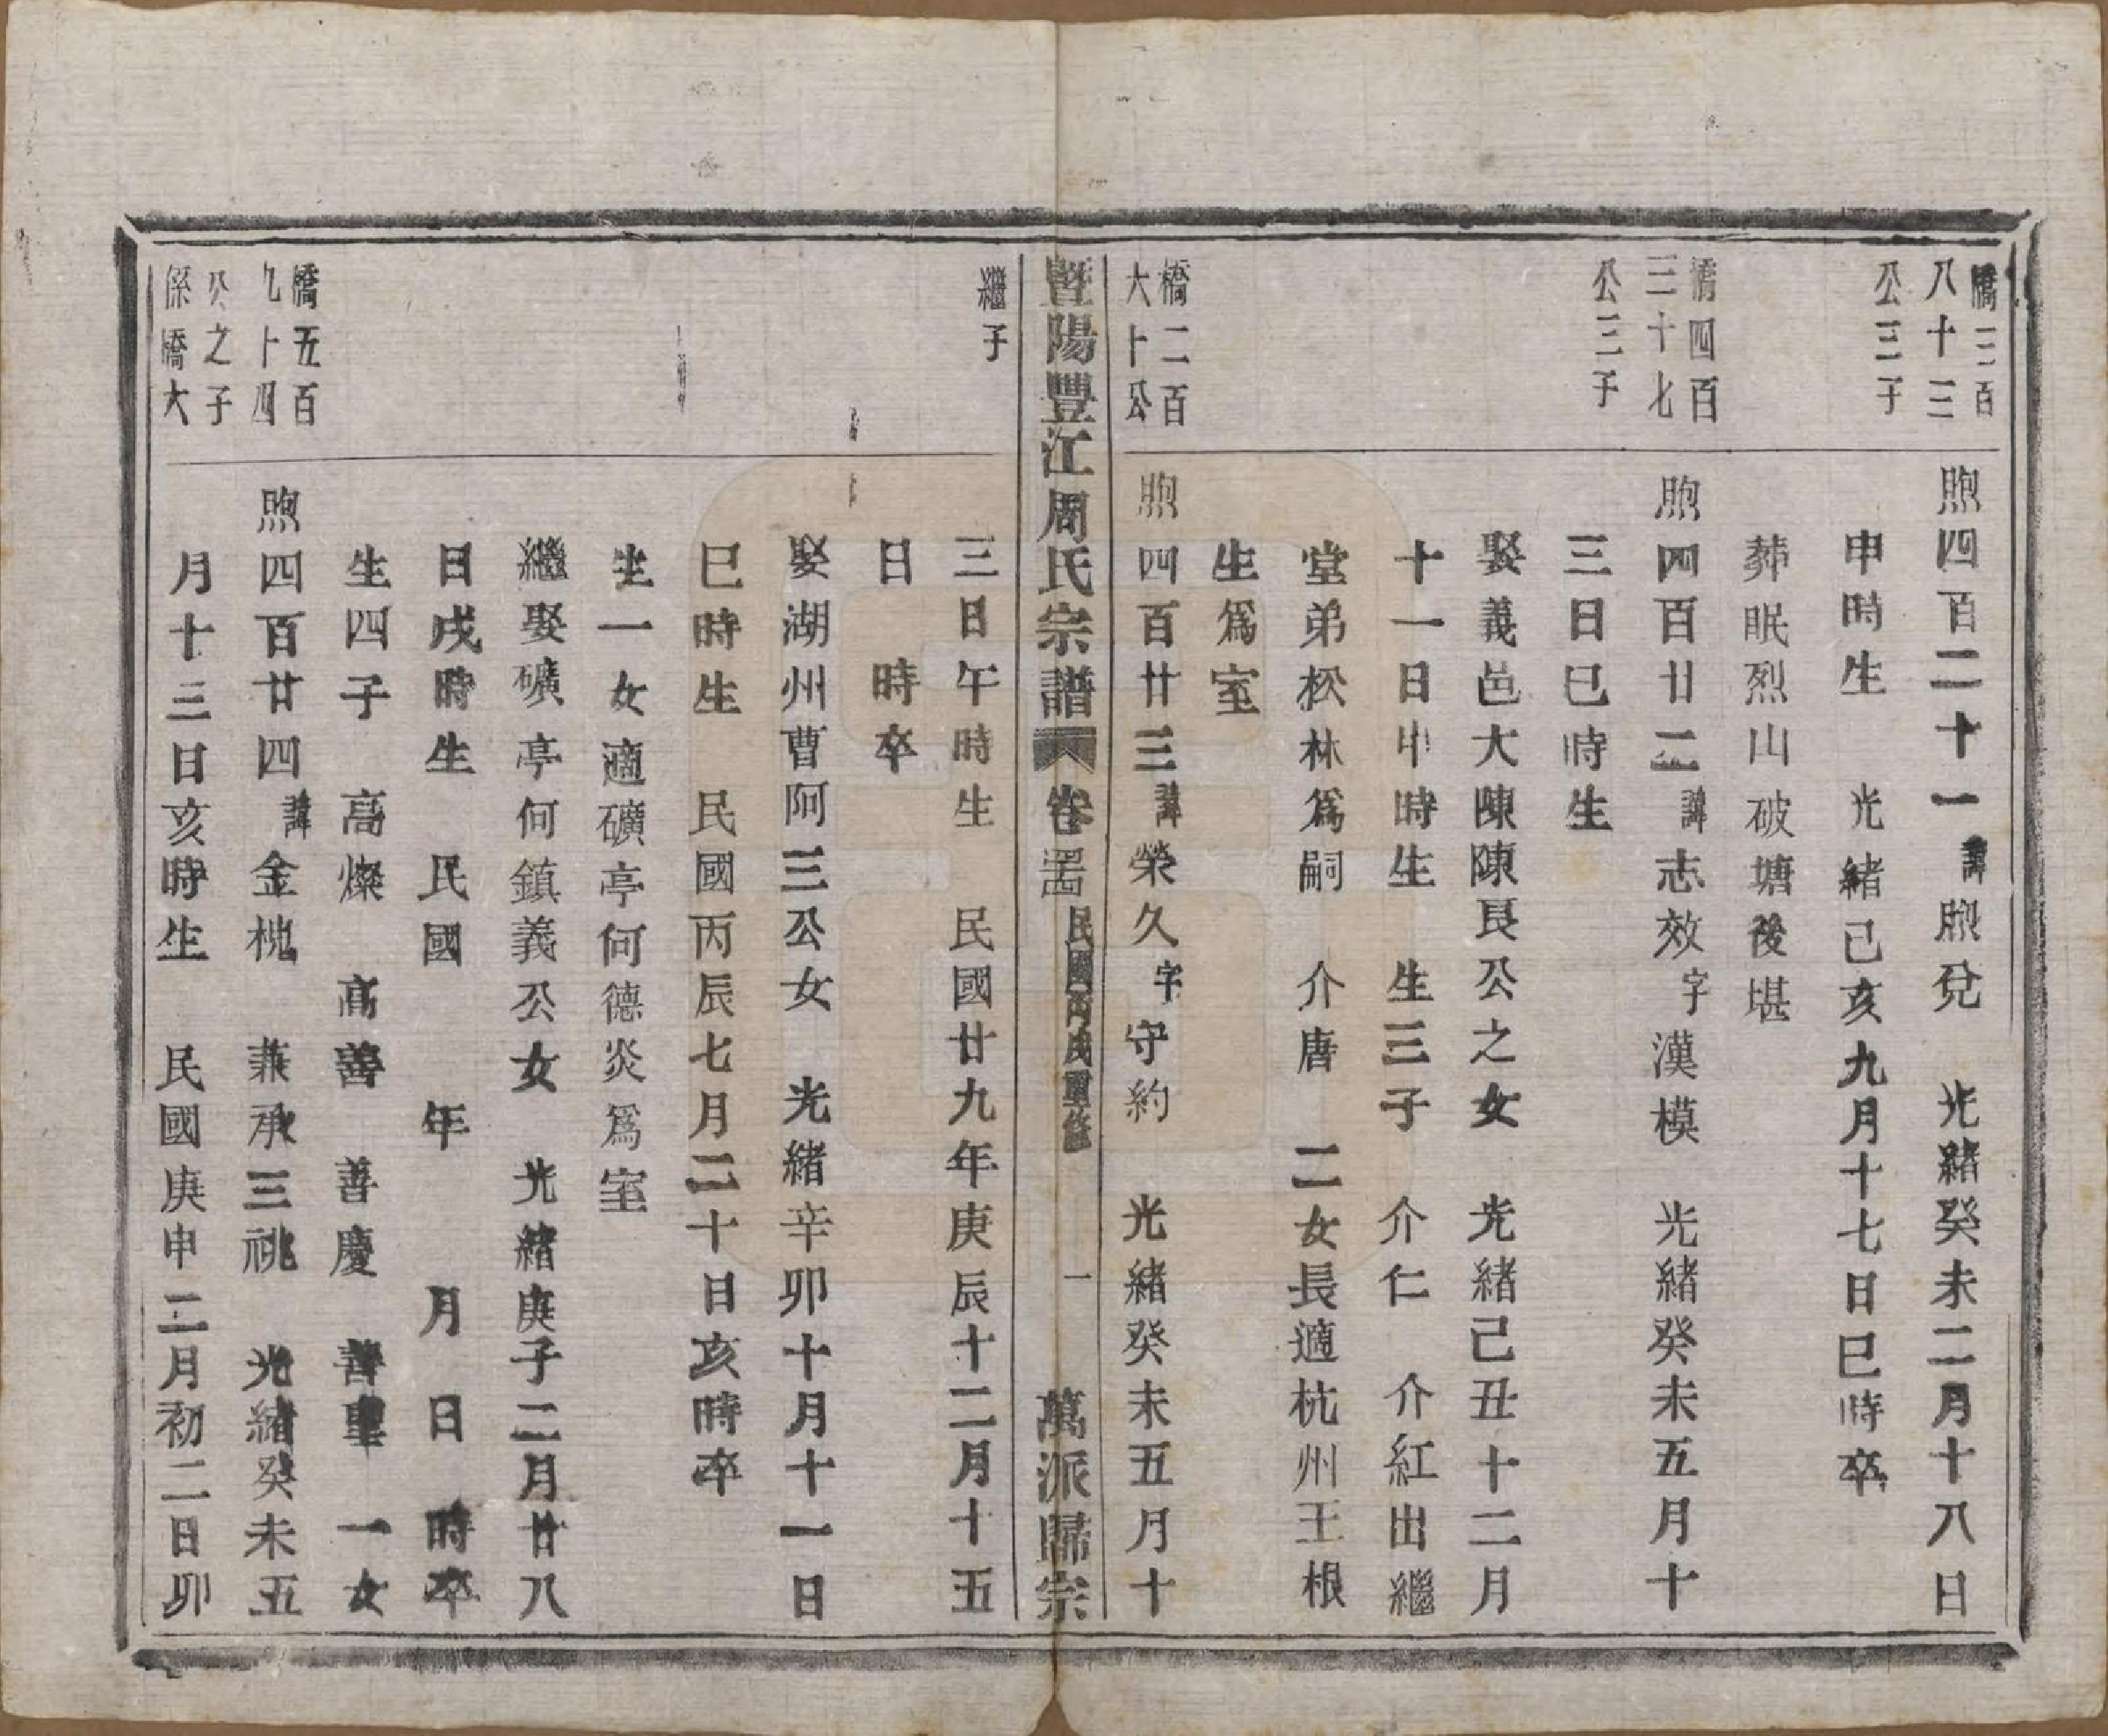 橋三百
八十三
公三子
煦四百二十一諱煦兌　光緒癸未二月十八日
申時生　光緒己亥九月十七日巳時卒
葬眠烈山破塘後堪
橋四百
三十七
公三子
煦四百廿二諱志效字漢模　光緒癸未五月十
三日巳時生
娶義邑大陳陳良公之女　光緒己丑十二月
十一日申時生　生三子　介仁　介紅出繼
堂弟松林為嗣　介唐　二女長適杭州王根
生為室
橋二百
六十公
煦四百廿三諱榮久字守約　光緒癸未五月十
暨陽豐江周氏宗譜　卷　民國丙戌重修　一　萬派歸宗
繼子
三日午時生　民國廿九年庚辰十二月十五
日　時卒
娶湖州曹阿三公女　光緒辛卯十月十一日
巳時生　民國丙辰七月二十日亥時卒
生一女適礦亭何德炎為室
繼娶礦亭何鎮義公女　光緒庚子二月廿八
日戌時生　民國　年　月　日　時卒
生四子　高燦　高善　善慶　善聖　一女
橋五百
九十四
公之子
係橋大
煦四百廿四諱金桃　兼承三祧　光緒癸未五
月十三日亥時生　民國庚申二月初二日卯